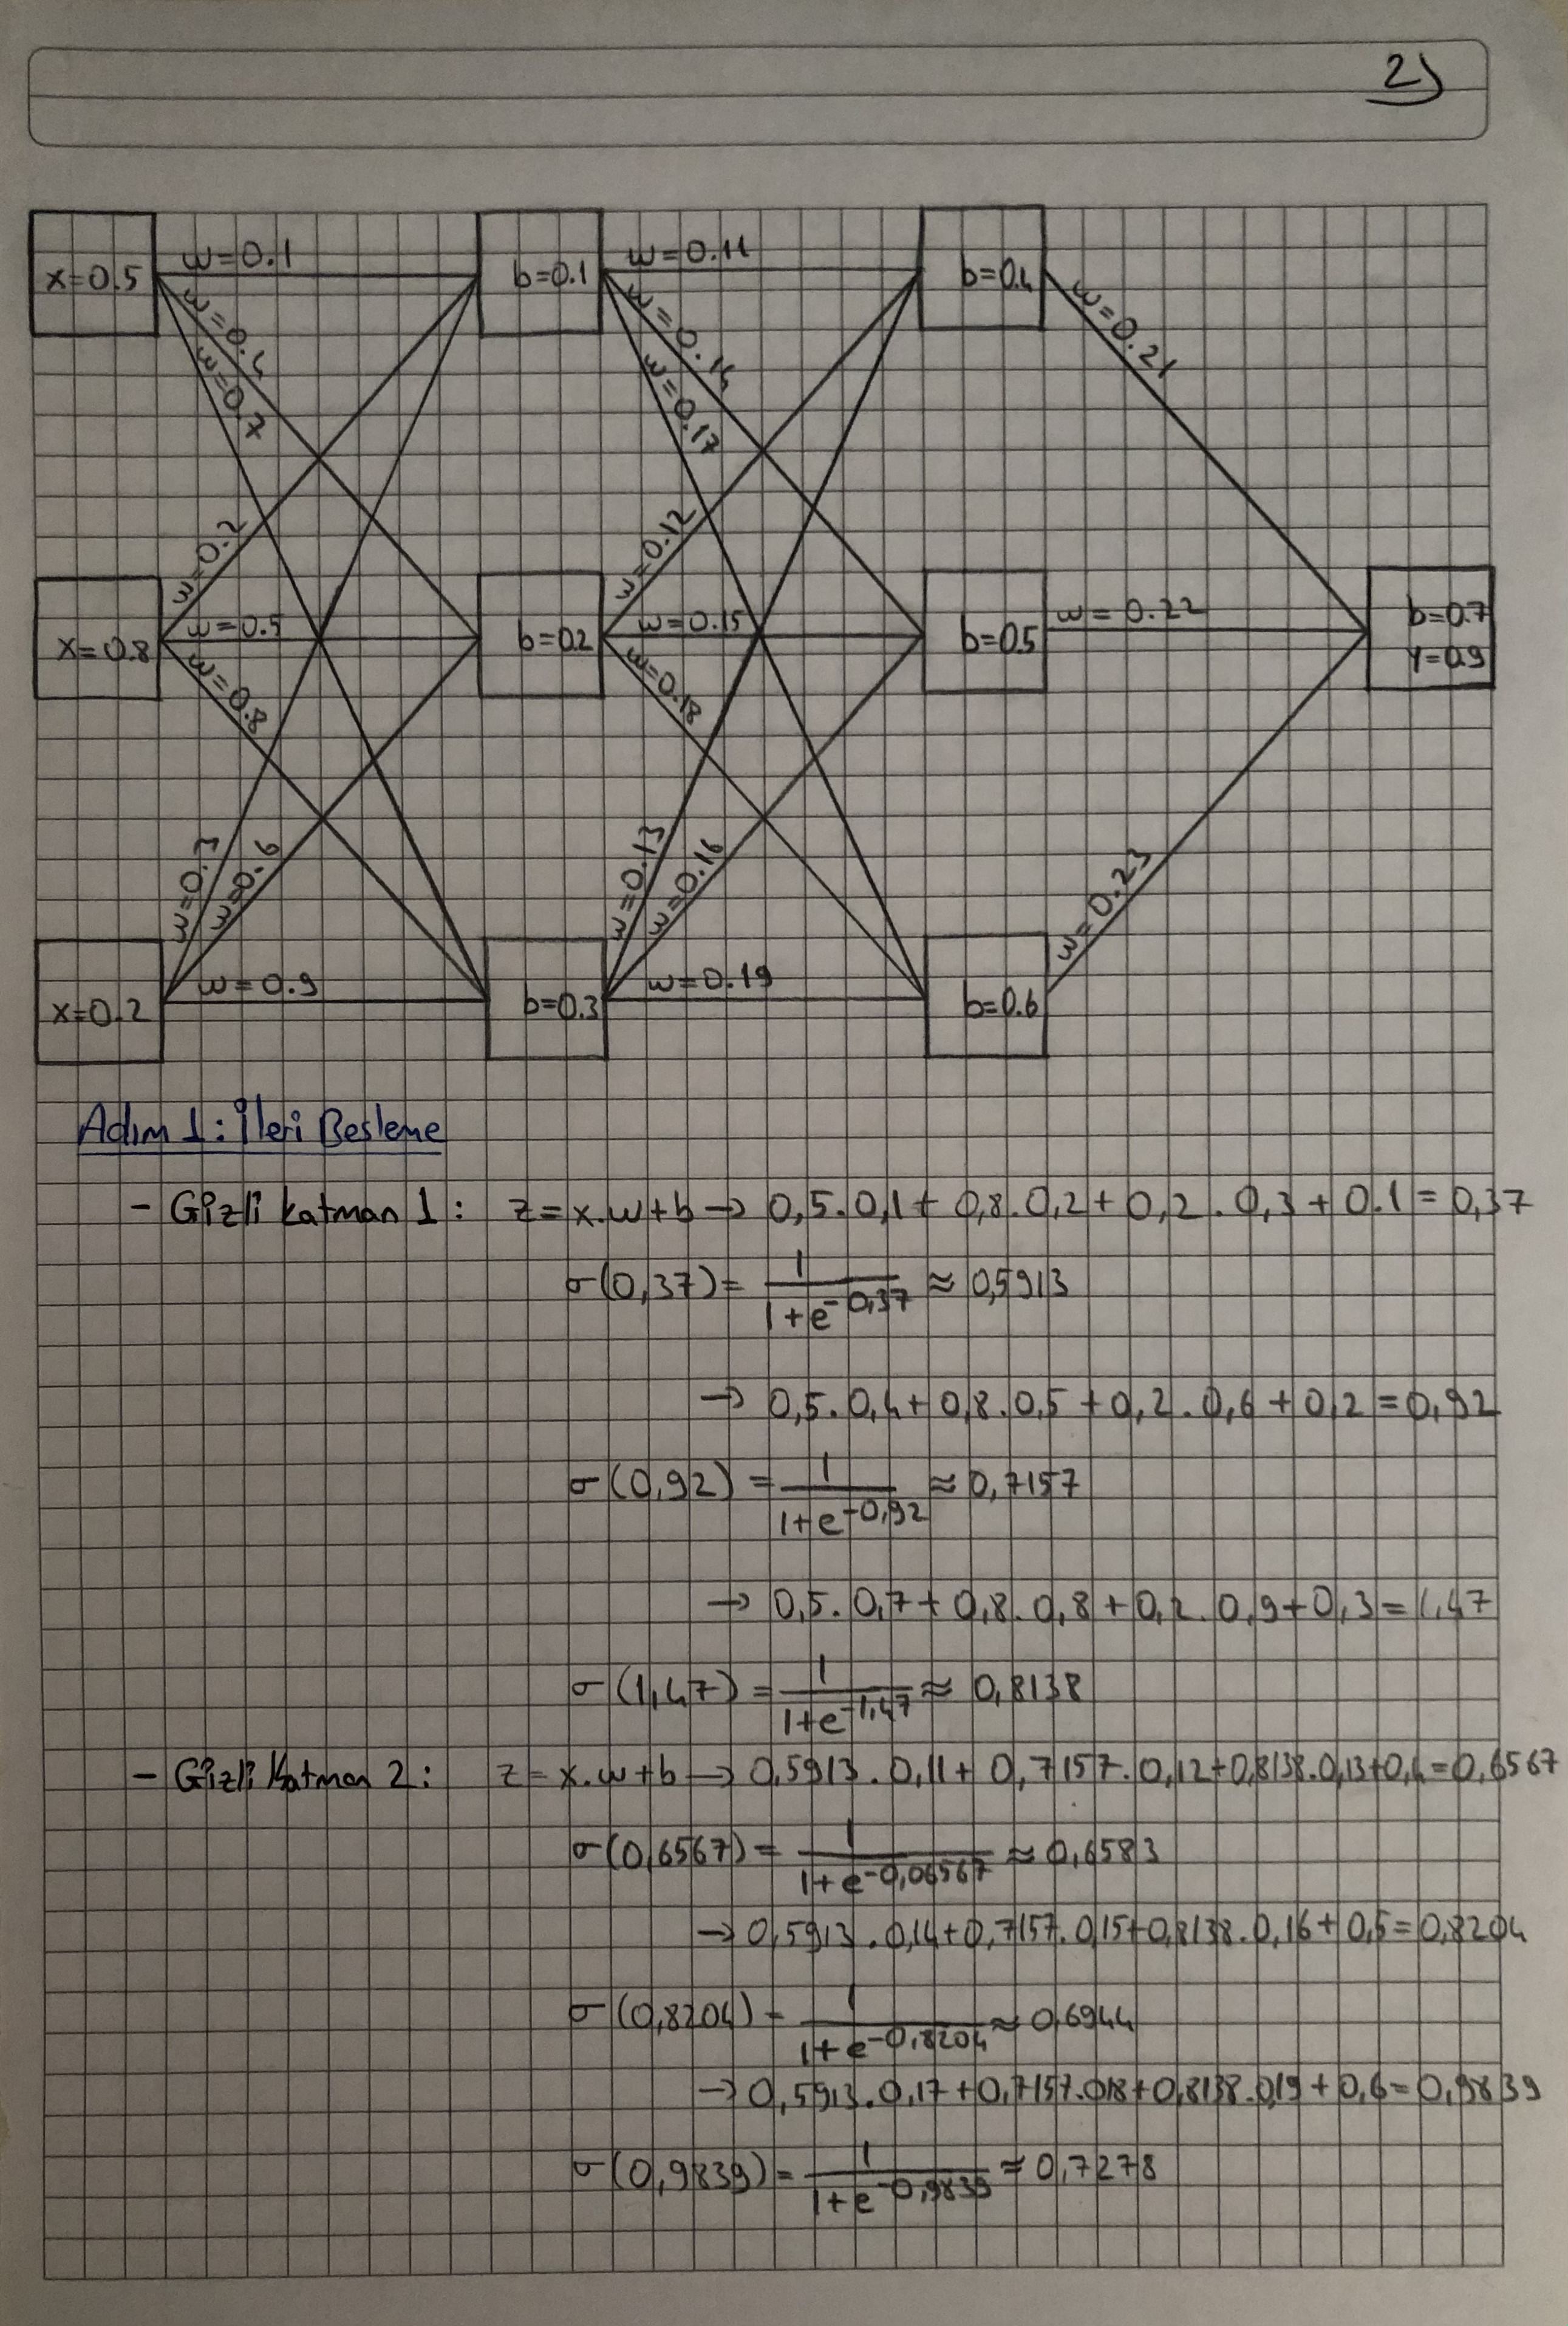 2)
x=0.5
w=0.1
w=0.4
w=0.7
b=0.1
w=0.11
w=0.14
w=0.17
b=0.4
w=0.21
x=0.8
w=0.2
w=0.5
w=0.8
b=0.2
w=0.12
w=0.15
w=0.18
b=0.5
w=0.22
b=0.7
Y=0.9
x=0.2
w=0.3
w=0.6
w=0.9
b=0.3
w=0.13
w=0.16
w=0.19
b=0.6
w=0.23
Adım 1: İleri Besleme
- Gizli katman 1: z=x.w+b → 0,5.0,1+0,8.0,2+0,2.0,3+0.1=0,37
σ(0,37)= 1/(1+e^-0,37) ≈ 0,5913
→ 0,5.0,4+0,8.0,5+0,2.0,6+0,2=0,92
σ(0,92)= 1/(1+e^-0,92) ≈ 0,7157
→ 0,5.0,7+0,8.0,8+0,2.0,9+0,3=1,47
σ(1,47)= 1/(1+e^-1,47) ≈ 0,8138
- Gizli Katman 2: z=x.w+b → 0,5913.0,11+0,7157.0,12+0,8138.0,13+0,4=0,6567
σ(0,6567)= 1/(1+e^-0,06567) ≈ 0,6583
→ 0,5913.0,14+0,7157.0,15+0,8138.0,16+0,5=0,8204
σ(0,8204)= 1/(1+e^-0,8204) ≈ 0,6944
→ 0,5913.0,17+0,7157.018+0,8138.0,19+0,6=0,9839
σ(0,9839)= 1/(1+e^-0,9839) ≈ 0,7278